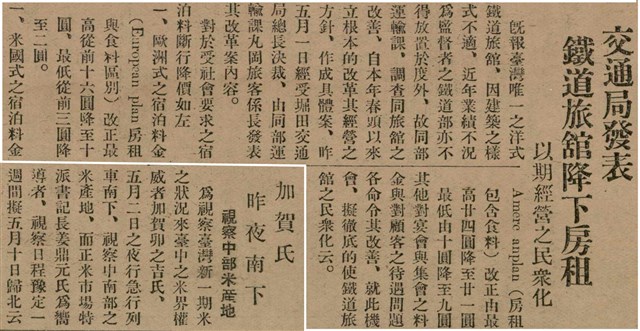 交通局發表
鐵道旅舘降下房租
以期經營之民衆化
旣報臺灣唯一之洋式
鐵道旅舘、因建築之樣
式不適、近年業績不況
為監督者之鐵道部亦不
得放置於度外、故同部
運輸課、調查同旅舘之
改善、自本年春頭以來
立根本的改革其經營之
方針、作成具體案、昨
五月一日經受堀田交通
局總長決裁、由同部運
輸課丸岡旅客係長發表
其改革案內容。
對於受社會要求之宿
泊料斷行降價如左
一、歐洲式之宿泊料金
(European plan 房租
與食料區別)改正最
高從前十六圓降至十
圓、最低從前三圓降
至二圓。
一、米國式之宿泊料金
Amere anplan(房租
包含食料)改正由最
高廿四圓降至廿一圓
最低由十圓降至九圓
其他對宴會與集會之料
金與對顧客之待遇問題
各命令其改善、就此機
會、擬徹底的使鐵道旅
舘之民衆化云。
加賀氏
昨夜南下
視察中部米産地
為視察臺灣新一期米
之狀況來臺中之米界權
威者加賀卯之吉氏、
五月二日之夜行急行列
車南下、視察中南部之
米產地、而正米市場特
派書記長姜鼎元氏爲嚮
導者、視察日程豫定一
週間擬五月十日歸北云